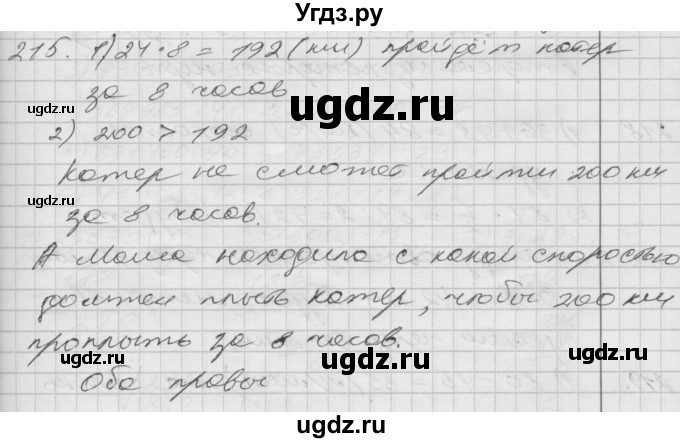 Угдз.ру
215. 1) 24 · 8 = 192 (км) пройдёт катер
за 8 часов
2) 200 > 192
Катер не сможет пройти 200 км
за 8 часов.
А Маша находила с какой скоростью
должен плыть катер, чтобы 200 км
проплыть за 8 часов.
Оба правы
ugdz.ru
ugdz.ru
ugdz.ru
ugdz.ru
ugdz.ru
ugdz.ru
ugdz.ru
ugdz.ru
ugdz.ru
ugdz.ru
ugdz.ru
ugdz.ru
Угдз.ру